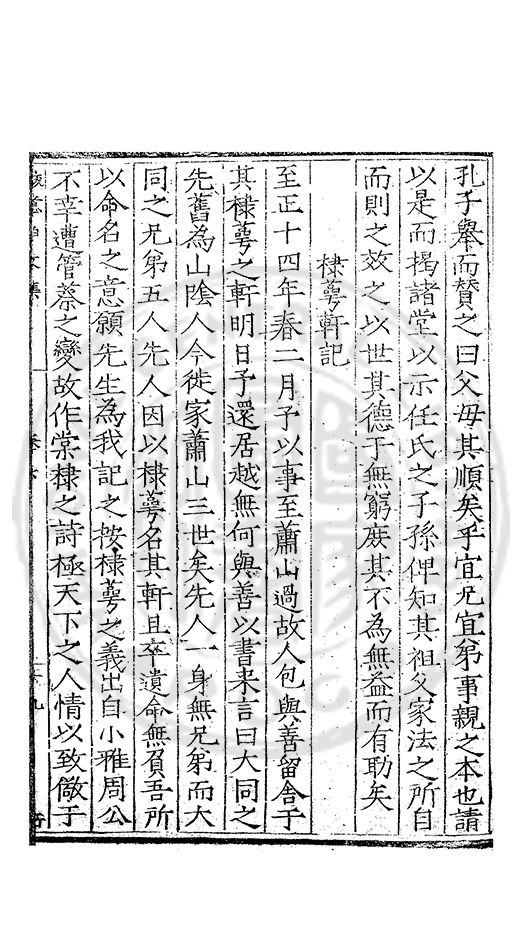 孔子舉而贊之曰父母其順矣乎宜兄宜弟事親之本也請
以是而揭諸堂以示任氏之子孫俾知其祖父家法之所自
而則之效之以世其德于無窮庶其不為無益而有助矣
棣蕚軒記
至正十四年春二月予以事至蕭山過故人包與善留舍于
其棣蕚之軒明日予還居越無何與善以書来言曰大同之
先舊為山陰人今徙家蕭山三世矣先人一身無兄弟而大
同之兄弟五人先人因以棣蕚名其軒且卒遺命無負吾所
以命名之意願先生為我記之按棣蕚之義出自小雅周公
不幸遭管蔡之變故作棠棣之詩極天下之人情以致儆于